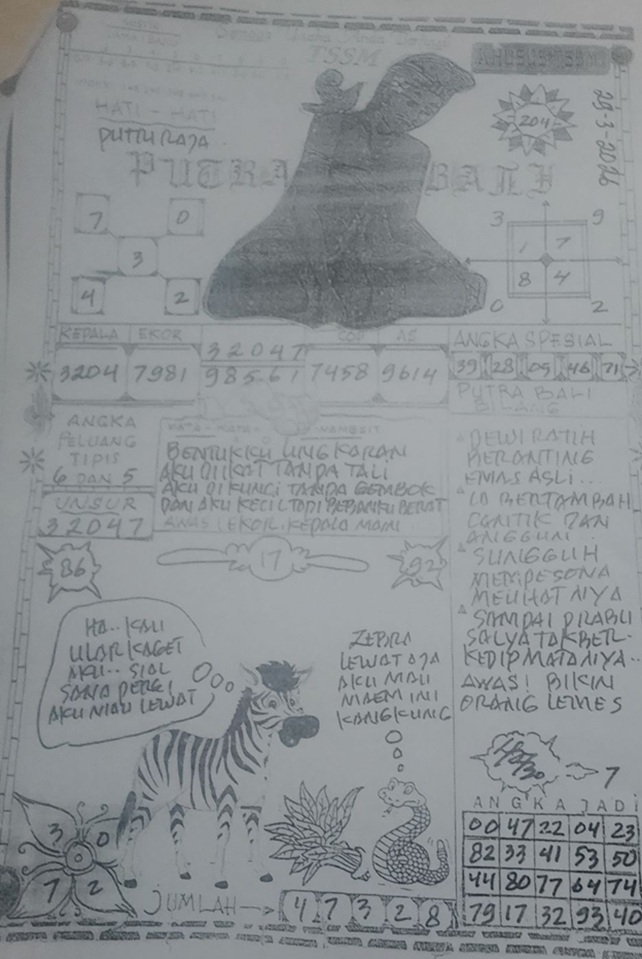 TSSM
KHUSUS TSSM
HATI - HATI
PUTRU RAJA
204
29-3-2026
PUTRA BALI
7 0
3
4 2
3 9
1 7
8 4
0 2
KEPALA EKOR
32047
COP AS
3204 7981
98561
7458 9614
ANGKA SPESIAL
39 28 05 46 71
PUTRA BALI
ANGKA
PELUANG
TIPIS
6 DAN 5
UNSUR
32047
BENTUKKU LINGKARAN
AKU DIIKAT TANPA TALI
AKU DI KUNCI TANPA GEMBOK
DAN AKU KECIL TADI BEBANKU BERAT
AWAS! EKOR, KEPALA MAIN
DEWI RATIH
BERANTING
EMAS ASLI...
IA BERTAMBAH
CANTIK DAN
ANGGUN.
SUNGGUH
MEMPESONA
MELIHATNYA
SAMPAI PRABU
SALYA TAK BER-
KEDIP MATANYA..
AWAS! BIKIN
ORANG LEMES
86
17
92
HA.. KALI
ULAR KAGET
AKU.. SIAL
SANA PERGI
AKU MAU LEWAT
ZEBRA
LEWAT AJA
AKU MAU
MAEM INI
KANGKUNG
7
ANGKA JADI
00 47 22 04 23
82 33 41 53 50
44 80 77 64 74
79 17 32 93 40
3 0
7 2
JUMLAH
4 7 3 2 8